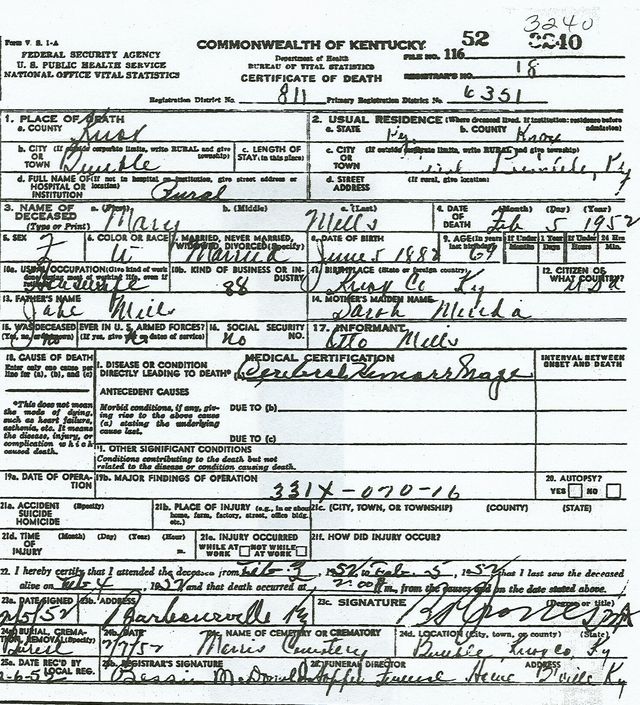 3240
Form V. S. 1-A
FEDERAL SECURITY AGENCY
U. S. PUBLIC HEALTH SERVICE
NATIONAL OFFICE VITAL STATISTICS
COMMONWEALTH OF KENTUCKY
Department of Health
BUREAU OF VITAL STATISTICS
CERTIFICATE OF DEATH
FILE NO. 116 52
REGISTRAR'S NO. 18
Registration District No. 811 Primary Registration District No. 6351
1. PLACE OF DEATH
a. COUNTY Knox
2. USUAL RESIDENCE (Where deceased lived. If institution: residence before admission)
a. STATE Ky b. COUNTY Knox
b. CITY (If outside corporate limits, write RURAL and give township)
OR
TOWN
c. LENGTH OF
STAY (in this place)
c. CITY (If outside corporate limits, write RURAL and give township)
OR
TOWN Ky
d. FULL NAME OF (If not in hospital or institution, give street address or location)
HOSPITAL OR
INSTITUTION Rural
d. STREET (If rural, give location)
ADDRESS
3. NAME OF DECEASED
(Type or Print)
a. (First) Mary b. (Middle) c. (Last) Mills
4. DATE OF DEATH (Month) (Day) (Year) Feb 5 1952
5. SEX F
6. COLOR OR RACE W
7. MARRIED, NEVER MARRIED, WIDOWED, DIVORCED (Specify) Married
8. DATE OF BIRTH June 5 1882
9. AGE (In years last birthday) 69 If Under 1 Year Months Days If Under 24 Hrs Hours Min.
10a. USUAL OCCUPATION (Give kind of work done during most of working life, even if retired) Housewife
10b. KIND OF BUSINESS OR INDUSTRY 88
11. BIRTHPLACE (State or foreign country) Knox Co Ky
12. CITIZEN OF WHAT COUNTRY? USA
13. FATHER'S NAME Jake Mills
14. MOTHER'S MAIDEN NAME Sarah
15. WAS DECEASED EVER IN U. S. ARMED FORCES?
(Yes, no, or unknown) (If yes, give war or dates of service) No
16. SOCIAL SECURITY NO. No
17. INFORMANT Otto Mills
18. CAUSE OF DEATH
Enter only one cause per line for (a), (b), and (c)
MEDICAL CERTIFICATION
INTERVAL BETWEEN ONSET AND DEATH
I. DISEASE OR CONDITION
DIRECTLY LEADING TO DEATH* Cerebral Hemorrhage
*This does not mean the mode of dying, such as heart failure, asthenia, etc. It means the disease, injury, or complication which caused death.
ANTECEDENT CAUSES
Morbid conditions, if any, giving rise to the above cause (a) stating the underlying cause last.
DUE TO (b)
DUE TO (c)
II. OTHER SIGNIFICANT CONDITIONS
Conditions contributing to the death but not related to the disease or condition causing death.
19a. DATE OF OPERATION
19b. MAJOR FINDINGS OF OPERATION
331X-070-16
20. AUTOPSY?
YES NO
21a. ACCIDENT (Specify)
SUICIDE
HOMICIDE
21b. PLACE OF INJURY (e.g., in or about home, farm, factory, street, office bldg. etc.)
21c. (CITY, TOWN, OR TOWNSHIP) (COUNTY) (STATE)
21d. TIME OF INJURY (Month) (Day) (Year) (Hour) m.
21e. INJURY OCCURRED
WHILE AT WORK NOT WHILE AT WORK
21f. HOW DID INJURY OCCUR?
22. I hereby certify that I attended the deceased from Feb 3, 1952, to Feb. 5, 1952, that I last saw the deceased
alive on Feb 4, 1952 and that death occurred at 2:00 P m., from the causes and on the date stated above.
23a. DATE SIGNED 2/5/52
23b. ADDRESS Barbourville Ky
23c. SIGNATURE (Degree or title)
24a. BURIAL, CREMATION, REMOVAL (Specify) Burial
24b. DATE 2/7/52
24c. NAME OF CEMETERY OR CREMATORY Cemetery
24d. LOCATION (City, town, or county) (State) Knox Co, Ky
25a. DATE REC'D BY LOCAL REG. 2-6-52
25b. REGISTRAR'S SIGNATURE Bessie McDonald
26. FUNERAL DIRECTOR ADDRESS Hopper Funeral Home B'ville Ky